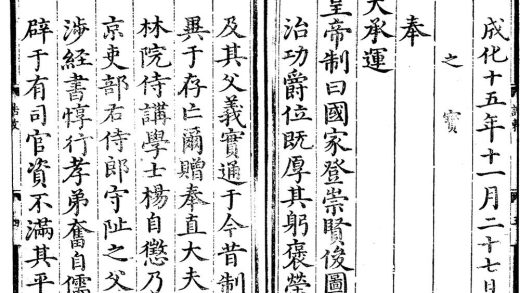 成化十五年十一月二十七日
之寳
奉
天承運
皇帝制曰國家登崇賢俊圖
治功爵位既厚其躬褒榮
及其父義實通于今昔制
異于存亡爾贈奉直大夫
林院侍講學士楊自懲乃
京吏部右侍郎守阯之父
涉經書惇行孝弟奮自儒
辟于有司官資不滿其平